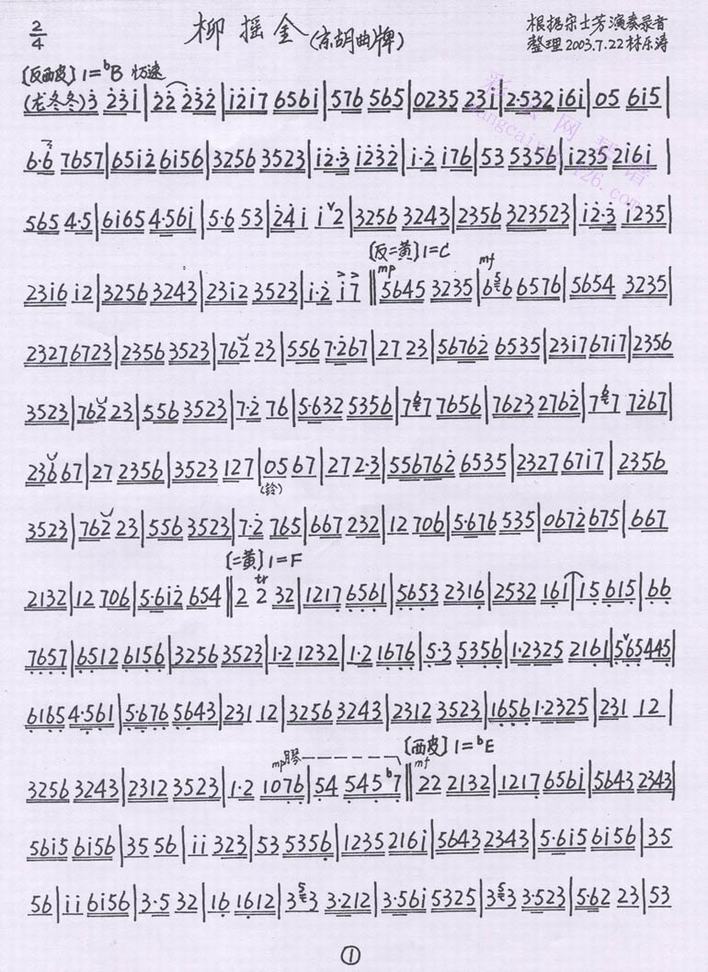 2/4 柳摇金(京胡曲牌) 根据宋士芳演奏录音
整理 2003.7.22 林东涛
〔反西皮〕1=ᵇB 快速
(龙冬冬)3̇ 2̇3̇1̇|2̇2̇ 2̇3̇2̇|1̇2̇1̇7 6561̇|576 565|0235 231̇|2·532 1̇61̇|05 61̇5|
6·6 7657|651̇2̇ 61̇56|3256 3523|1̇2̇·3̇ 1̇2̇3̇2̇|1̇·2̇ 1̇76|53 5356|1̇235 21̇61̇|
565 4·5|61̇65 4·561̇|5·6 53|2̇4̇1̇ 1̇ᵛ2|3256 3243|2356 323523|1̇2̇·3̇ 1̇235|
〔反二黄〕1=C
231̇6 1̇2|3256 3243|231̇2 3523|1̇·2̇ 1̇7‖mp 5645 3235|mf 6 5 6 6576|5654 3235|
23276723|2356 3523|762̇ 23|556 7·2̇67|27 23|56762̇ 6535|231̇7671̇7|2356
3523|762̇ 23|556 3523|7·2̇ 76|5·632 5356|7 6 7 7656|7623 2762̇|7 6 7 72̇67|
23667|27 2356|3523 127|0567|272·3|556762̇ 6535|2327 671̇7|2356
(铃)
3523|762̇ 23|556 3523|7·2̇ 765|667 232|12 706|5·676 535|0672̇675|667
〔二黄〕1=F
2132|12 706|5·61̇2̇ 654‖2 tr 2 32|1217 6561|5653 2316|2532 161|15 615|66
7657|6512 6156|3256 3523|1·2 1232|1·2 1676|5·3 5356|1·2325 2161|5ᵛ65445|
6165 4·561|5·676 5643|231 12|3256 3243|2312 3523|1656 1·2325|231 12|
mp 〔西皮〕1=ᵇE
3256 3243|2312 3523|1·2 1076|54 545ᵇ7‖mf 22 2132|1217 6561̇|5643 2343|
561̇5 61̇56|35 56|1̇1̇ 323|53 5356|1235 2161̇|5643 2343|5·61̇5 61̇56|35
56|1̇1̇ 61̇56|3·5 32|16 1612|3 5 3 3·212|3·561̇ 5325|3 5 3 3·523|5·62 23|53
①